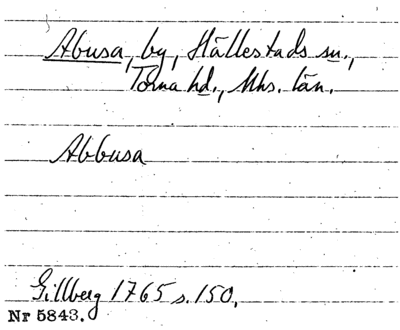 Abusa, by, Hällestads sn.,
Torna hd., Mhs. län.
Abbusa
Gillberg 1765 s. 150.
Nr 5843.